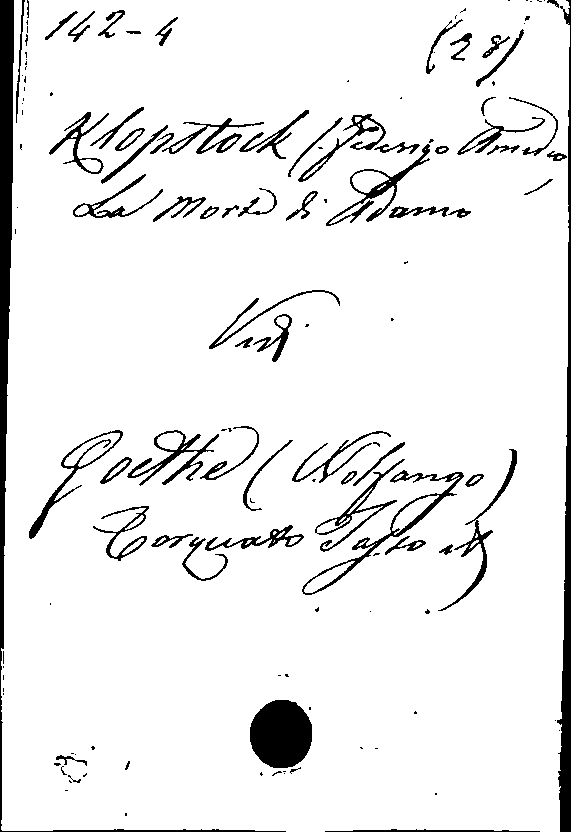 142-4 (28)
Klopstock (Federigo Amedeo,
La Morte di Adamo
Vedi
Goethe (Wolfango)
Torquato Tasso